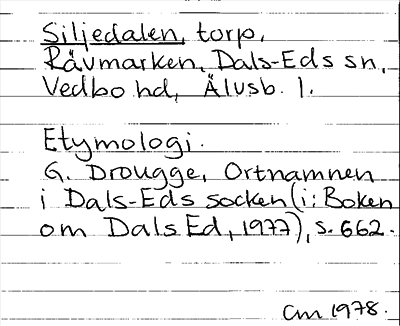 Siljedalen, torp,
Rävmarken, Dals-Eds sn,
Vedbo hd, Älvsb. l.
Etymologi.
G. Drougge, Ortnamnen
i Dals-Eds socken (i: Boken
om Dals Ed, 1977), s. 662.
Cm 1978.